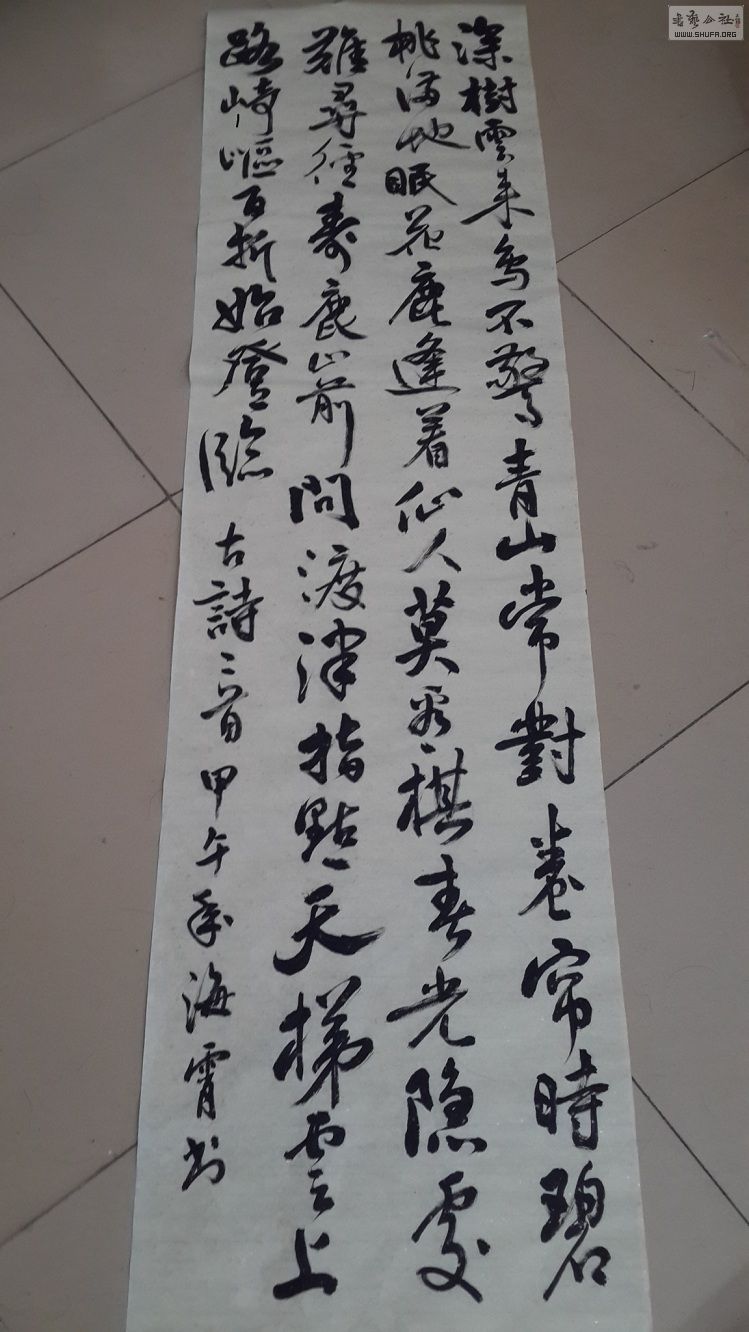 深樹雲来鸟不驚青山常對卷帘時碧
桃满地眠花鹿逢着仙人莫看棋春光隐處
難尋徑寿鹿山前問渡津指點天梯雲上
路崎嶇百折始登臨 古詩三首甲午年海霄书
书艺公社
WWW.SHUFA.ORG